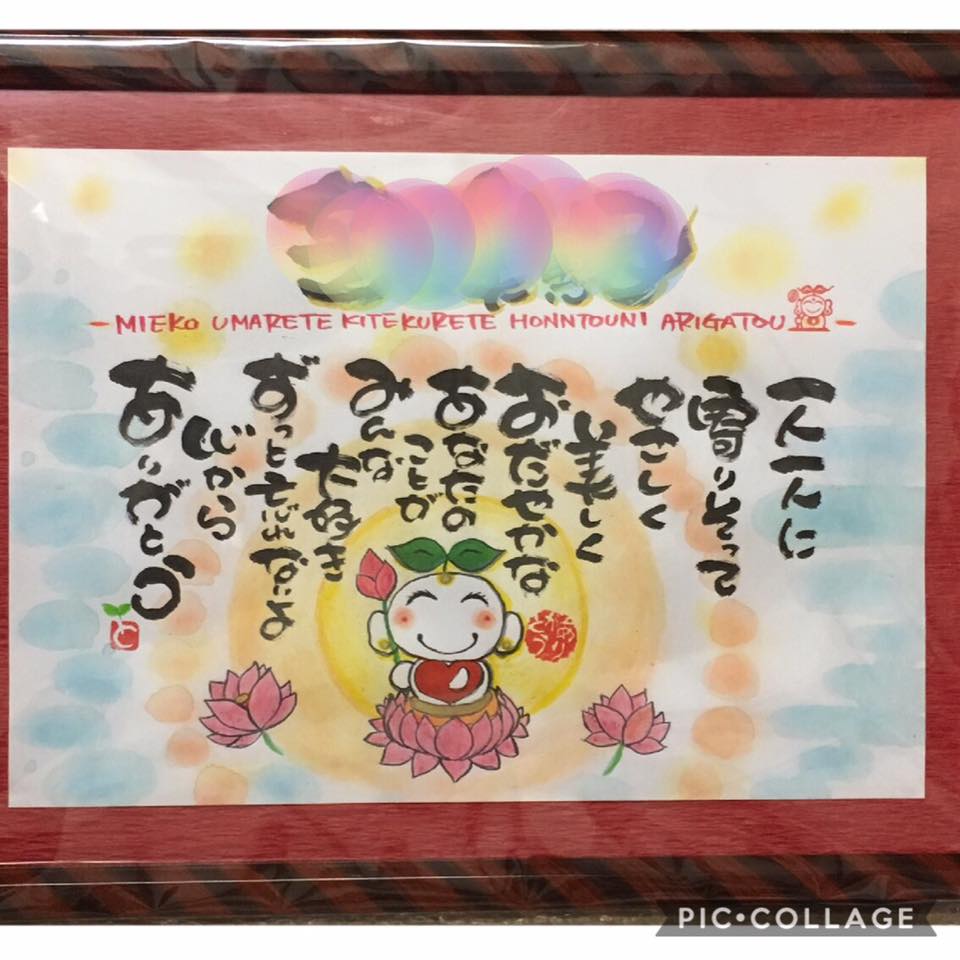 MIEKO UMARETE KITEKURETE HONNTOUNI ARIGATOU
一人一人に
寄りそって
やさしく
美しく
おだやかな
あなたの
ことが
みんな
大好き
ずっと だよ
心から
ありがとう
PIC•COLLAGE